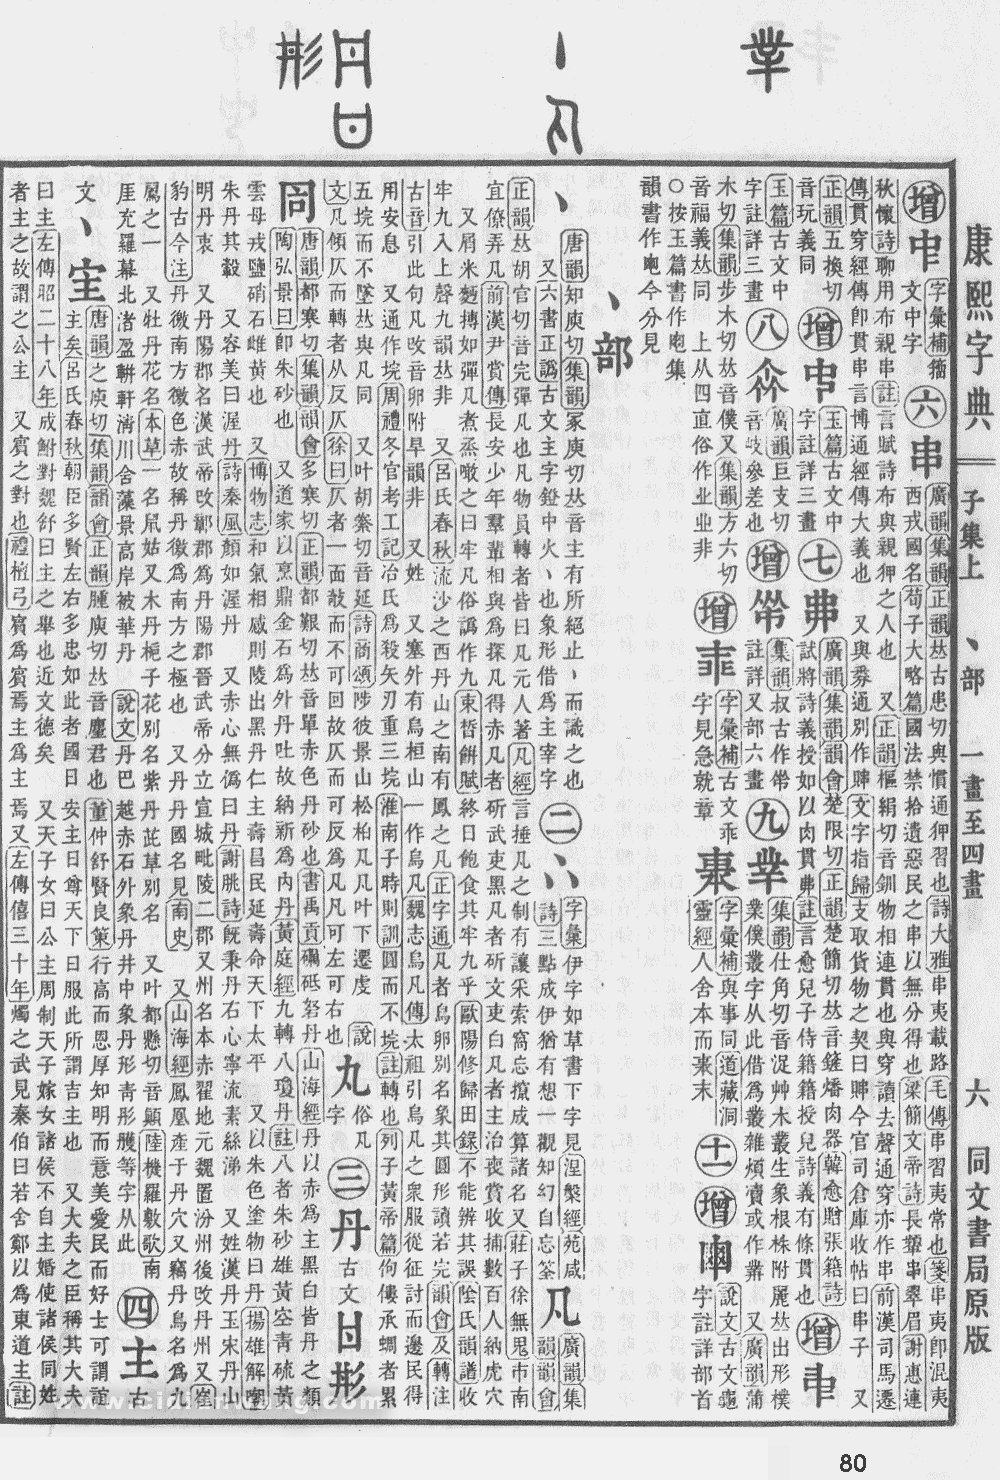 康熙字典 子集上 丶部 一畫至四畫 六 同文書局原版
增 字彙補籀文中字 六 串 廣韻集韻正韻𠀤古患切與慣通狎習也詩大雅串夷載路毛傳串習夷常也箋串夷卽混夷西戎國名荀子大略篇國法禁拾遺惡民之串以無分得也梁簡文帝詩長顰串翠眉謝惠連
秋懷詩聊用布親串註言賦詩布與親狎之人也 又正韻樞絹切音釧物相連貫也與穿讀去聲通穿亦作串前漢司馬遷傳貫穿經傳卽貫串言博通經傳大義也 又與賗通別作賗文字指歸支取貨物之契曰賗今官司倉庫收帖曰串子 又
正韻五換切音玩義同 增 玉篇古文中字註詳三畫 七 丳 廣韻集韻韻會楚限切正韻楚簡切𠀤音鏟燔肉器韓愈贈張籍詩試將詩義授如以肉貫丳註言愈兒子侍籍籍授兒詩義有條貫也 增
玉篇古文中字註詳三畫 八 廣韻巨支切音岐參差也 增 集韻叔古作註詳又部六畫 九 丵 集韻仕角切音浞艸木叢生象根株附麗𠀤出形樸業僕叢字从此借爲叢雜煩瀆或作 又廣韻蒲
木切集韻步木切𠀤音僕又集韻方六切音福義𠀤同 上从四直俗作业业非 增 字彙補古文乖字見急就章 字彙補與事同道藏洞靈經人舍本而末 十一 增 說文古文龜字註詳部首
○按玉篇書作集韻書作今分見
丶部
丶 唐韻知庾切集韻冢庾切𠀤音主有所絕止丶而識之也 又六書正譌古文主字鐙中火丶也象形借爲主宰字 二 字彙伊字如草書下字見涅槃經苑咸詩三點成伊猶有想一觀知幻自忘筌 凡 廣韻韻會集韻
正韻𠀤胡官切音完彈凡也凡物員轉者皆曰凡元人著凡經言捶凡之制有讓采索窩忘㨪成算諸名又莊子徐無鬼市南宜僚弄凡前漢尹賞傳長安少年羣輩相與爲探凡得赤凡者斫武吏黑凡者斫文吏白凡者主治喪賞收捕數百人納虎穴
又屑米麪摶如彈凡煮燕噉之曰牢凡俗譌作九束晳餅賦終日飽食其牢九乎歐陽修歸田錄不能辨其誤陰氏韻譜收牢九入上聲九韻𠀤非 又呂氏春秋流沙之西丹山之南有鳳之凡正字通凡者鳥卵別名象其圓形讀若完韻會及轉注
古音引此句凡改音卵附旱韻非 又姓 又塞外有烏桓山一作烏凡魏志烏凡傳太祖引烏凡之衆服從征討而邊民得用安息 又通作垸周禮冬官考工記冶氏爲殺矢刃重三垸淮南子時則訓圓而不垸註轉也列子黃帝篇佝僂承蜩者累
五垸而不墜𠀤與凡同 又叶胡縈切音延詩商頌陟彼景山松柏凡凡叶下遷虔 說文凡傾仄而轉者从反仄徐曰仄者一面敧而不可回故仄而可反爲凡凡可左可右也 九 俗凡字 三 丹 古文
唐韻都寒切集韻韻會多寒切正韻都艱切𠀤音單赤色丹砂也書禹貢礪砥砮丹山海經丹以赤爲主黑白皆丹之類陶弘景曰卽朱砂也 又道家以烹鼎金石爲外丹吐故納新爲內丹黃庭經九轉八瓊丹註八者朱砂雄黃空靑硫黃
雲母戎鹽硝石雌黃也 又博物志和氣相感則陵出黑丹仁主壽昌民延壽命天下太平 又以朱色塗物曰丹揚雄解嘲朱丹其轂 又容美曰渥丹詩秦風顏如渥丹 又赤心無僞曰丹謝朓詩旣秉丹石心寧流素絲涕 又姓漢丹玉宋丹山
明丹衷 又丹陽郡名漢武帝改鄣郡爲丹陽郡晉武帝分立宣城毗陵二郡又州名本赤翟地元魏置汾州後改丹州又崔豹古今注丹徼南方徼色赤故稱丹徼爲南方之極也 又丹丹國名見南史 又山海經鳳凰產于丹穴又竊丹鳥名爲九
鳸之一 又牡丹花名本草一名鼠姑又木丹梔子花別名紫丹茈草別名 又叶都懸切音顚陸機羅敷歌南崖充羅幕北渚盈軿軒淸川含藻景高岸被華丹 說文丹巴越赤石外象丹井中象丹形靑彤雘等字从此 四 主 古
文丶 唐韻之庾切集韻韻會正韻腫庾切𠀤音麈君也董仲舒賢良策行高而恩厚知明而意美愛民而好士可謂誼主矣呂氏春秋朝臣多賢左右多忠如此者國日安主日尊天下日服此所謂吉主也 又大夫之臣稱其大夫
曰主左傳昭二十八年成鮒對魏舒曰主之舉也近文德矣 又天子女曰公主周制天子嫁女諸侯不自主婚使諸侯同姓者主之故謂之公主 又賓之對也禮檀弓賓爲賓焉主爲主焉又左傳僖三十年燭之武見秦伯曰若舍鄭以爲東道主註
80